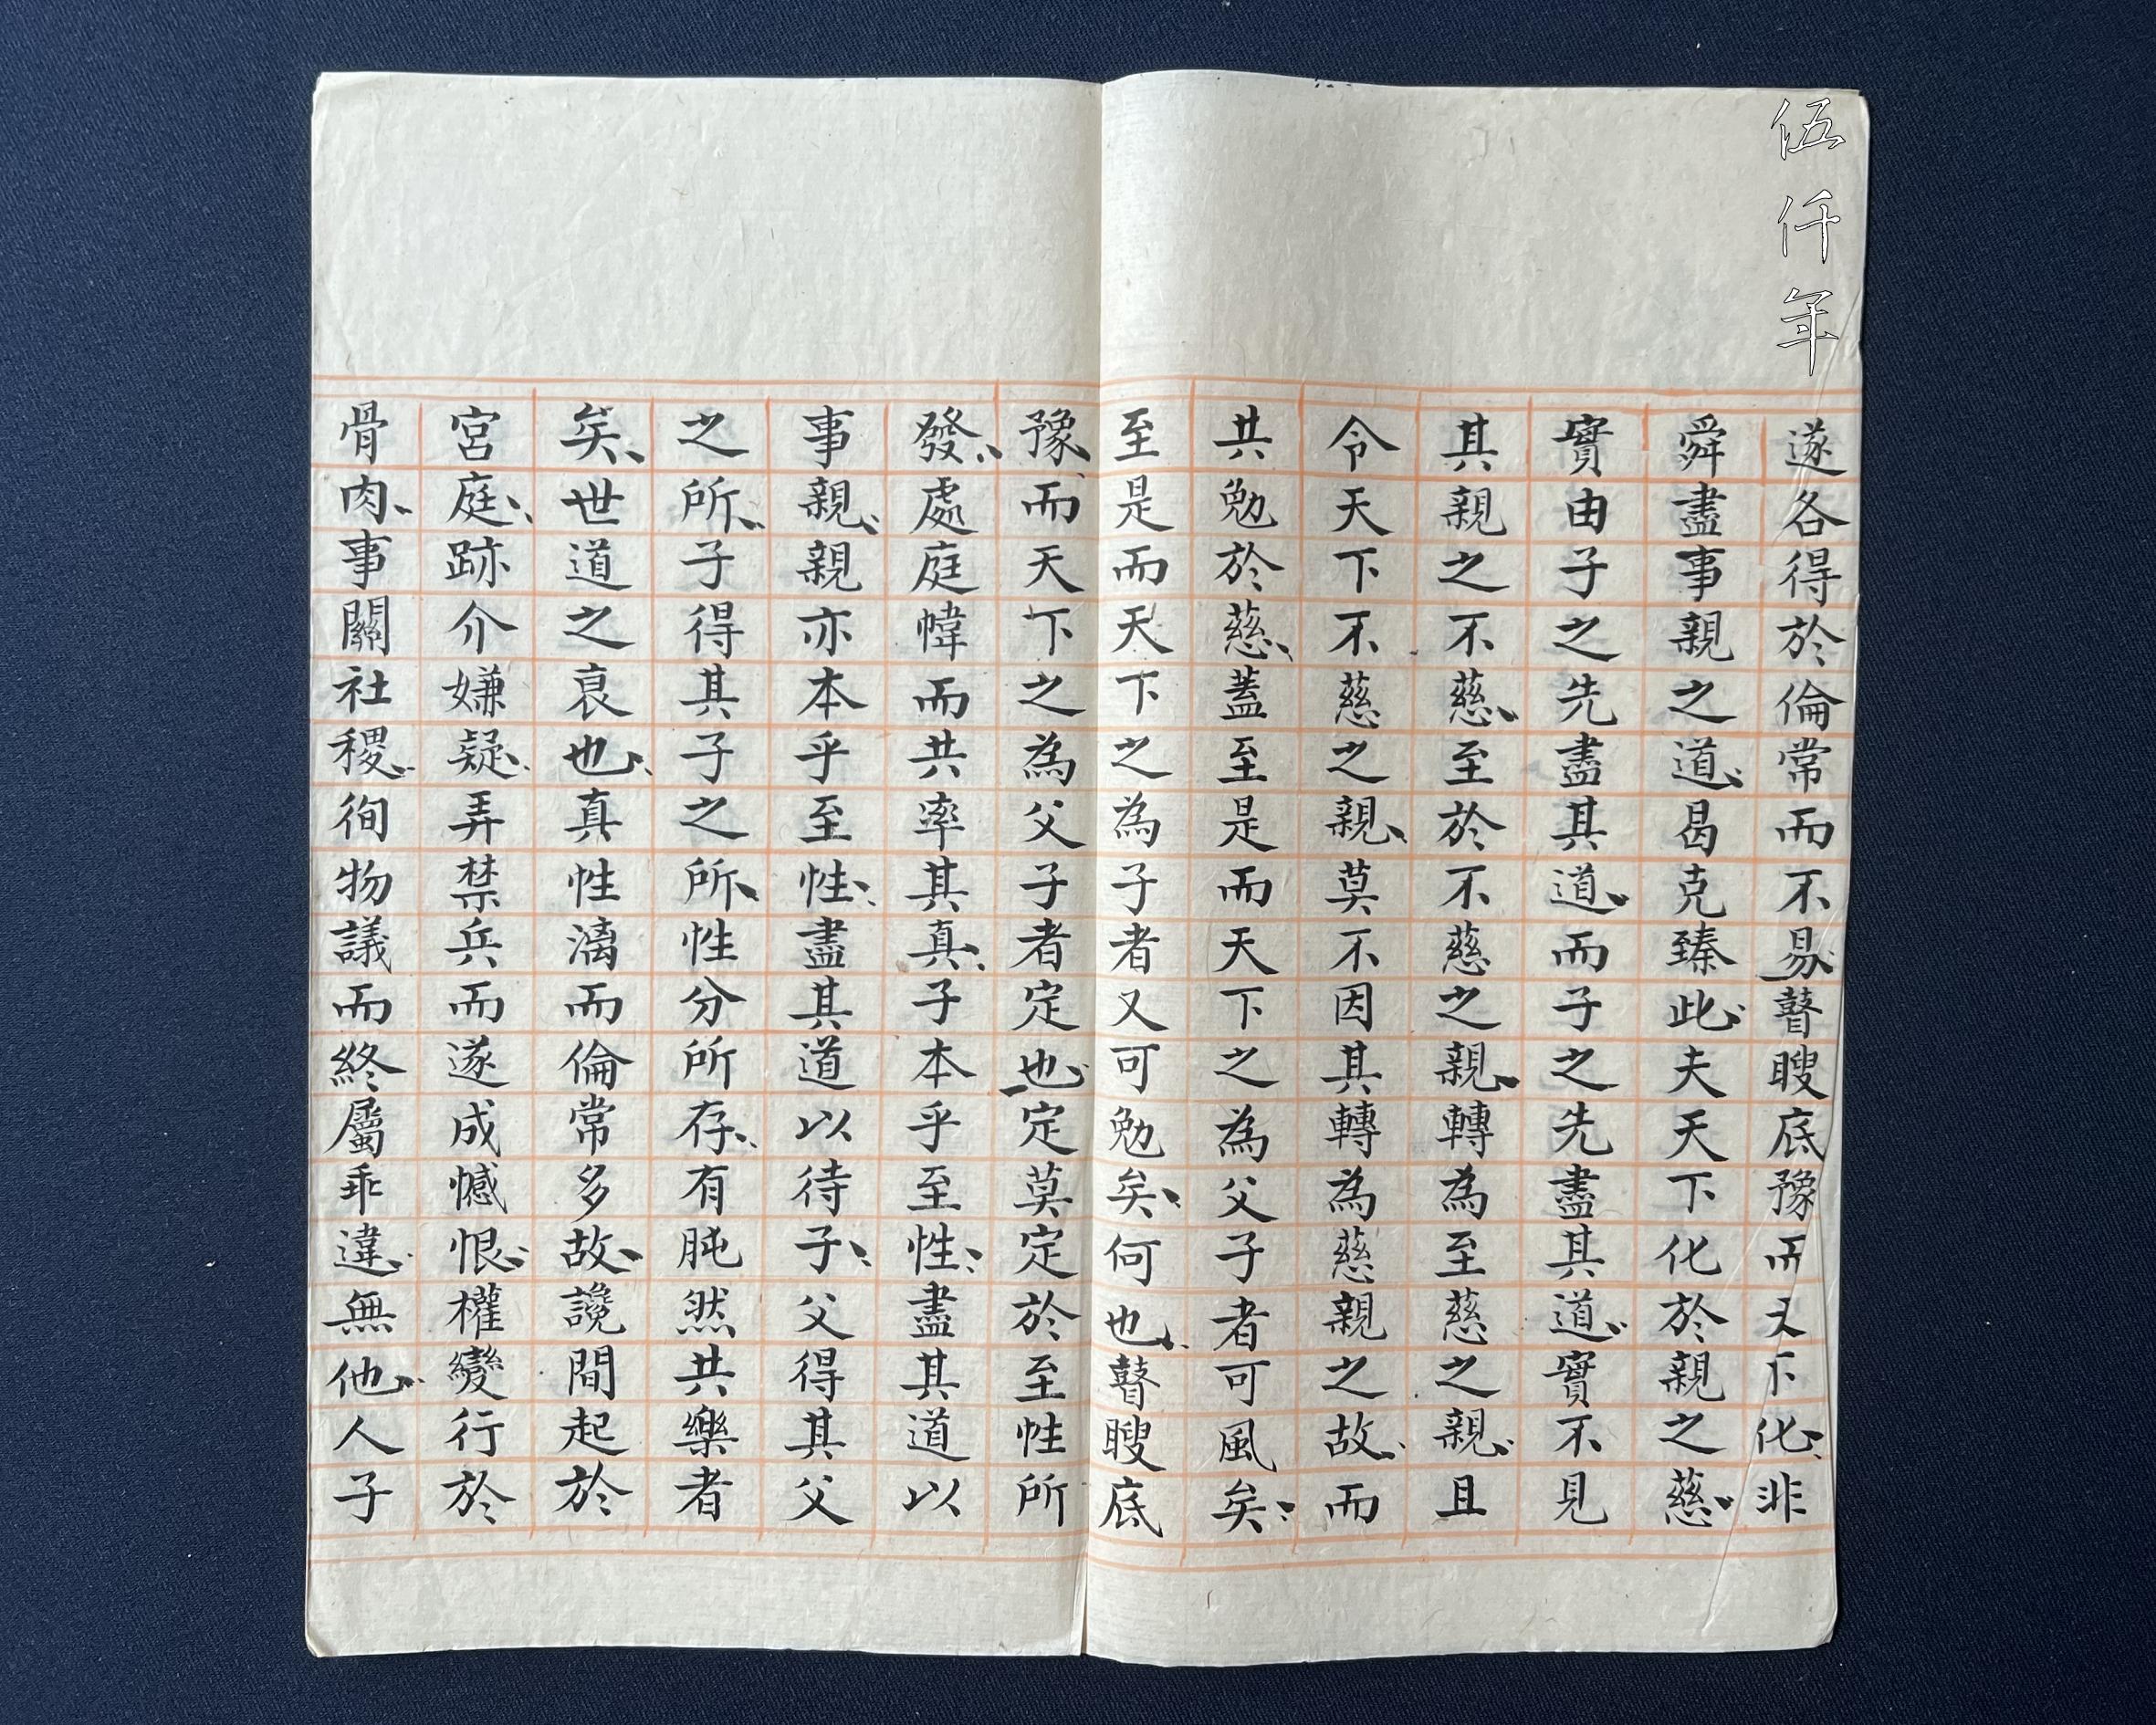 伍仟年
遂各得於倫常而不易瞽瞍底豫而又下化非
舜盡事親之道曷克臻此夫天下化於親之慈
實由子之先盡其道而子之先盡其道實不見
其親之不慈至於不慈之親轉為至慈之親且
令天下不慈之親莫不因其轉為慈親之故而
共勉於慈蓋至是而天下之為父子者可風矣
至是而天下之為子者又可勉矣何也瞽瞍底
豫而天下之為父子者定也定莫定於至性所
發處庭幃而共率其真子本乎至性盡其道以
事親親亦本乎至性盡其道以待子父得其父
之所子得其子之所性分所存有肫然共樂者
矣世道之衰也真性漓而倫常多故讒間起於
宮庭跡介嫌疑弄禁兵而遂成憾恨權變行於
骨肉事關社稷徇物議而終屬乖違無他人子